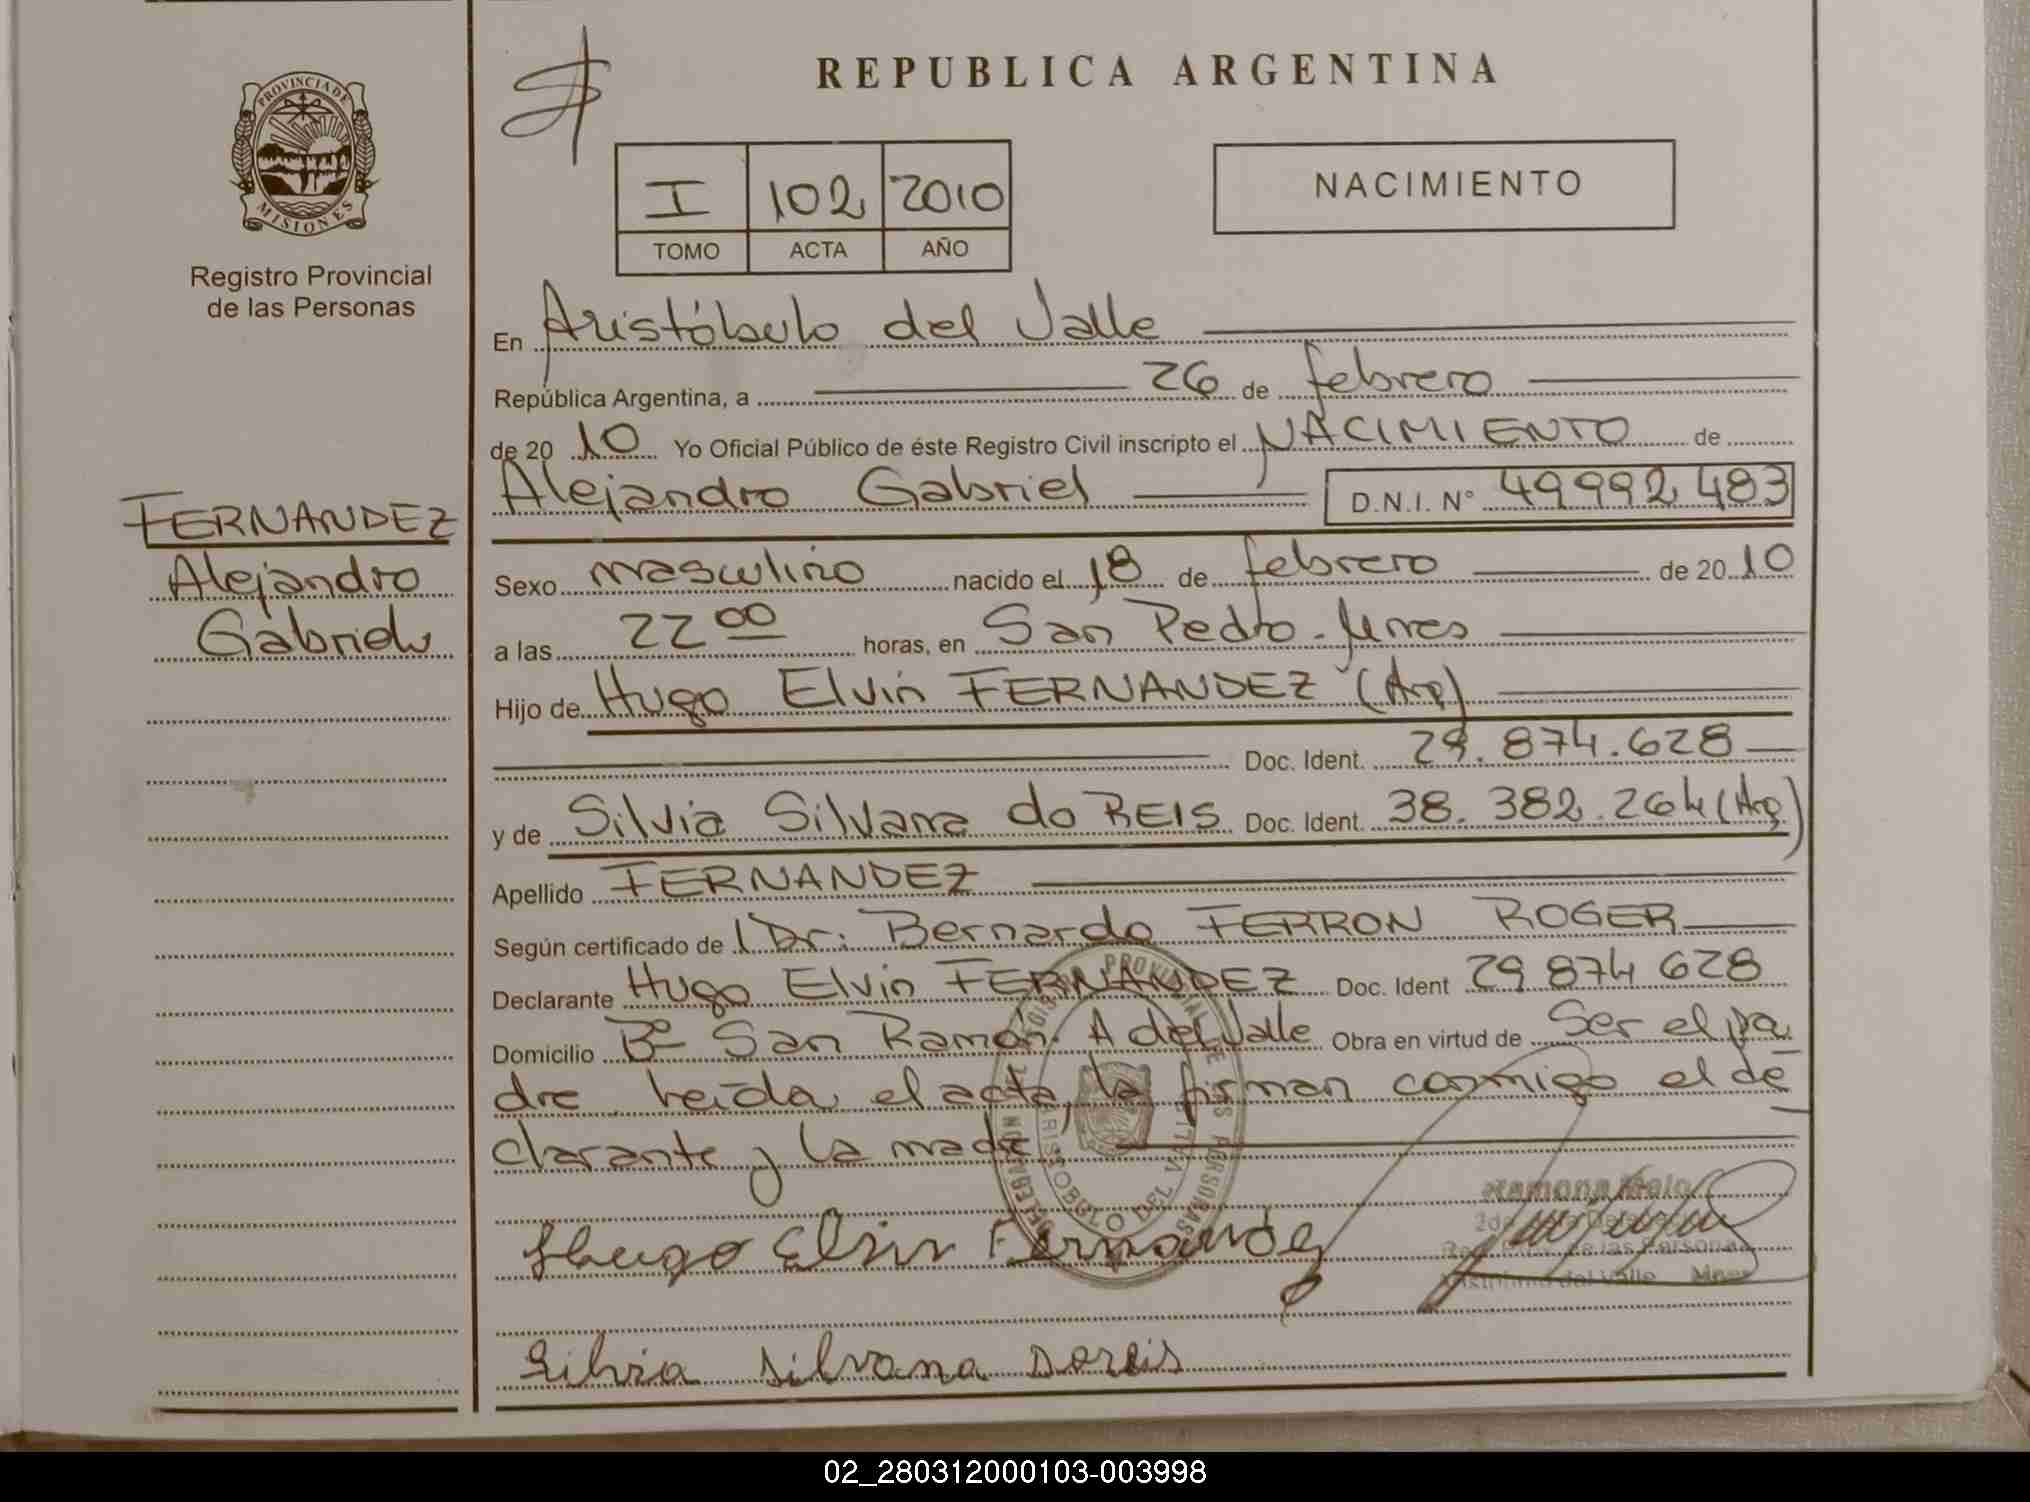 REPUBLICA ARGENTINA
PROVINCIA DE
MISIONES
Registro Provincial
de las Personas
I 102 2010
TOMO ACTA AÑO
NACIMIENTO
En Aristóbulo del Valle
República Argentina, a 26 de febrero
de 20 10 Yo Oficial Público de éste Registro Civil inscripto el NACIMIENTO de
Alejandro Gabriel D.N.I. N° 49992483
FERNANDEZ
Alejandro
Gabriel
Sexo masculino nacido el 18 de febrero de 20 10
a las 22 00 horas, en San Pedro - Mnes
Hijo de Hugo Elvin FERNANDEZ (Arg)
Doc. Ident. 29.874.628
y de Silvia Silvana do REIS Doc. Ident. 38.382.264 (Arg)
Apellido FERNANDEZ
Según certificado de Dr. Bernardo FERRON ROGER
Declarante Hugo Elvin FERNANDEZ Doc. Ident 29 874 628
Domicilio B° San Ramón. A del Valle Obra en virtud de Ser el pa
dre, leída el acta, la firman conmigo el de
clarante y la madre.
Hugo Elvin Fernandez
Ramona
de las Personas
del Valle Mnes
Silvia silvana doreis
02_280312000103-003998